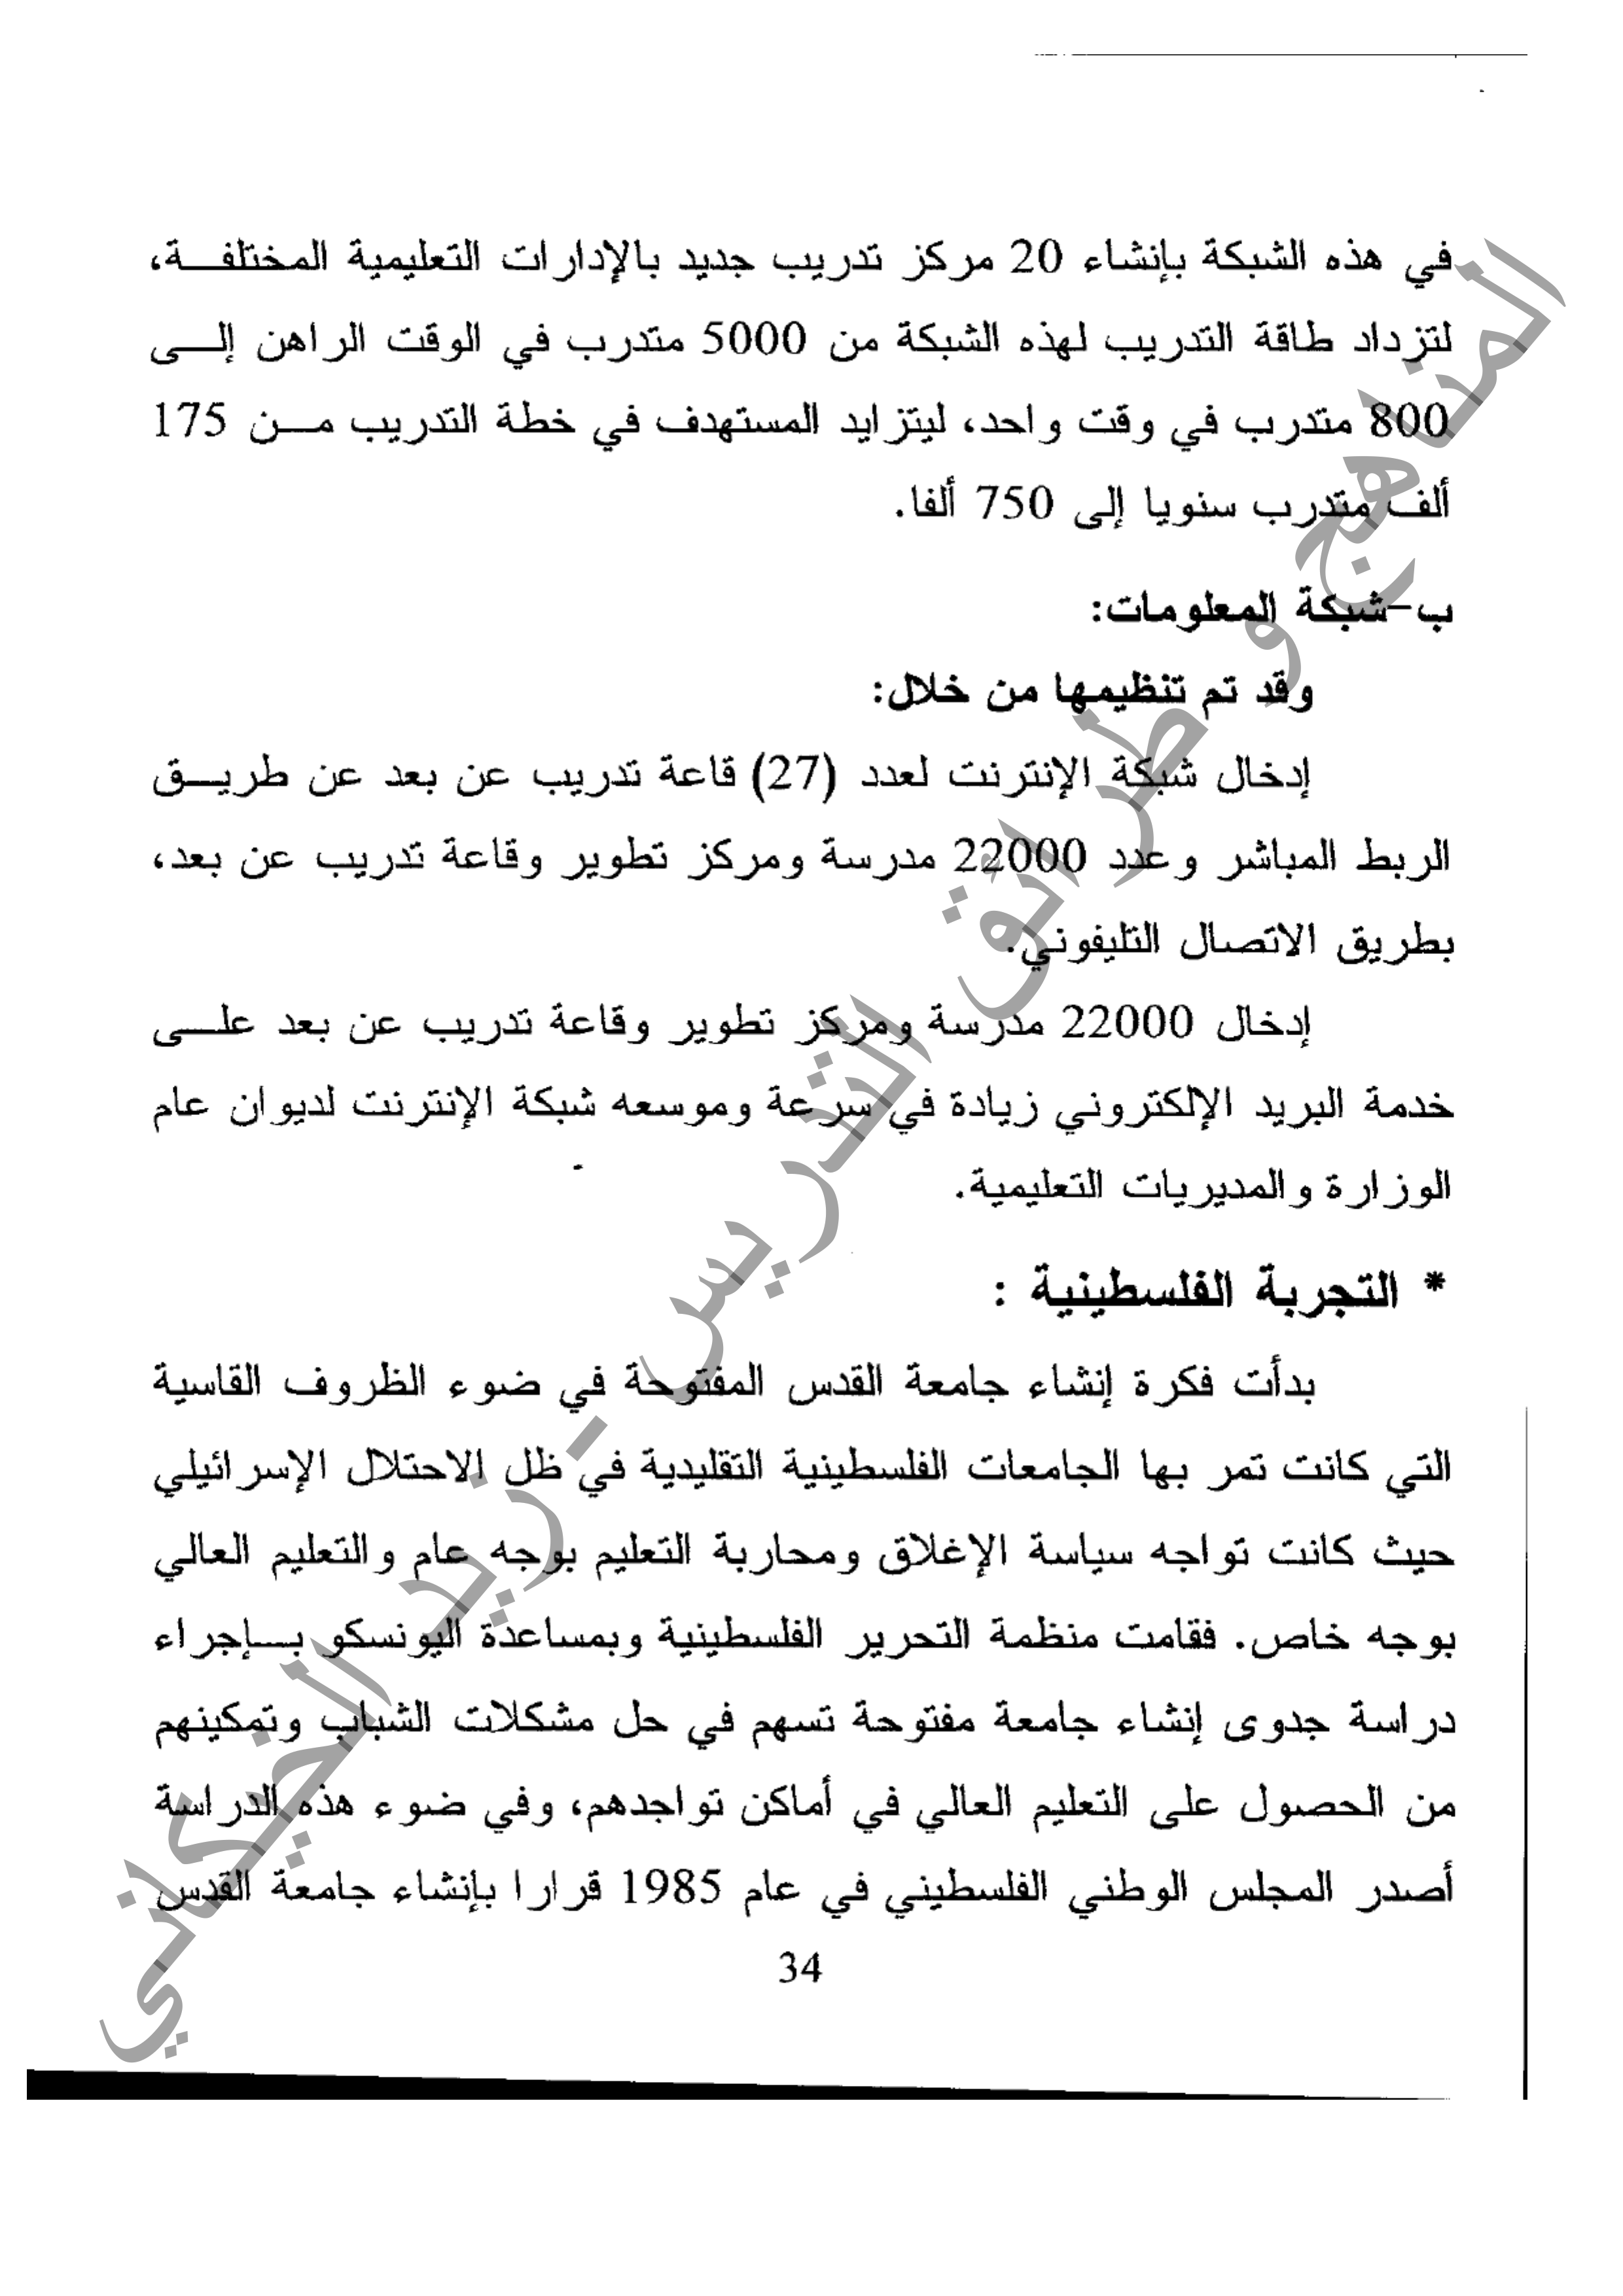 في هذه الشبكة بإنشاء 20 مركز تدريب جديد بالإدارات التعليمية المختلفة،
لتزداد طاقة التدريب لهذه الشبكة من 5000 متدرب في الوقت الراهن إلى
800 متدرب في وقت واحد، ليتزايد المستهدف في خطة التدريب من 175
ألف متدرب سنويا إلى 750 ألفا.
ب-شبكة المعلومات:
وقد تم تنظيمها من خلال:
إدخال شبكة الإنترنت لعدد (27) قاعة تدريب عن بعد عن طريق
الربط المباشر وعدد 22000 مدرسة ومركز تطوير وقاعة تدريب عن بعد،
بطريق الاتصال التليفوني.
إدخال 22000 مدرسة ومركز تطوير وقاعة تدريب عن بعد على
خدمة البريد الإلكتروني زيادة في سرعة وموسعه شبكة الإنترنت لديوان عام
الوزارة والمديريات التعليمية.
* التجربة الفلسطينية :
بدأت فكرة إنشاء جامعة القدس المفتوحة في ضوء الظروف القاسية
التي كانت تمر بها الجامعات الفلسطينية التقليدية في ظل الاحتلال الإسرائيلي
حيث كانت تواجه سياسة الإغلاق ومحاربة التعليم بوجه عام والتعليم العالي
بوجه خاص. فقامت منظمة التحرير الفلسطينية وبمساعدة اليونسكو بإجراء
دراسة جدوى إنشاء جامعة مفتوحة تسهم في حل مشكلات الشباب وتمكينهم
من الحصول على التعليم العالي في أماكن تواجدهم، وفي ضوء هذه الدراسة
أصدر المجلس الوطني الفلسطيني في عام 1985 قرارا بإنشاء جامعة القدس
34
المناهج وطرائق التدريس - زيد الخيكاني